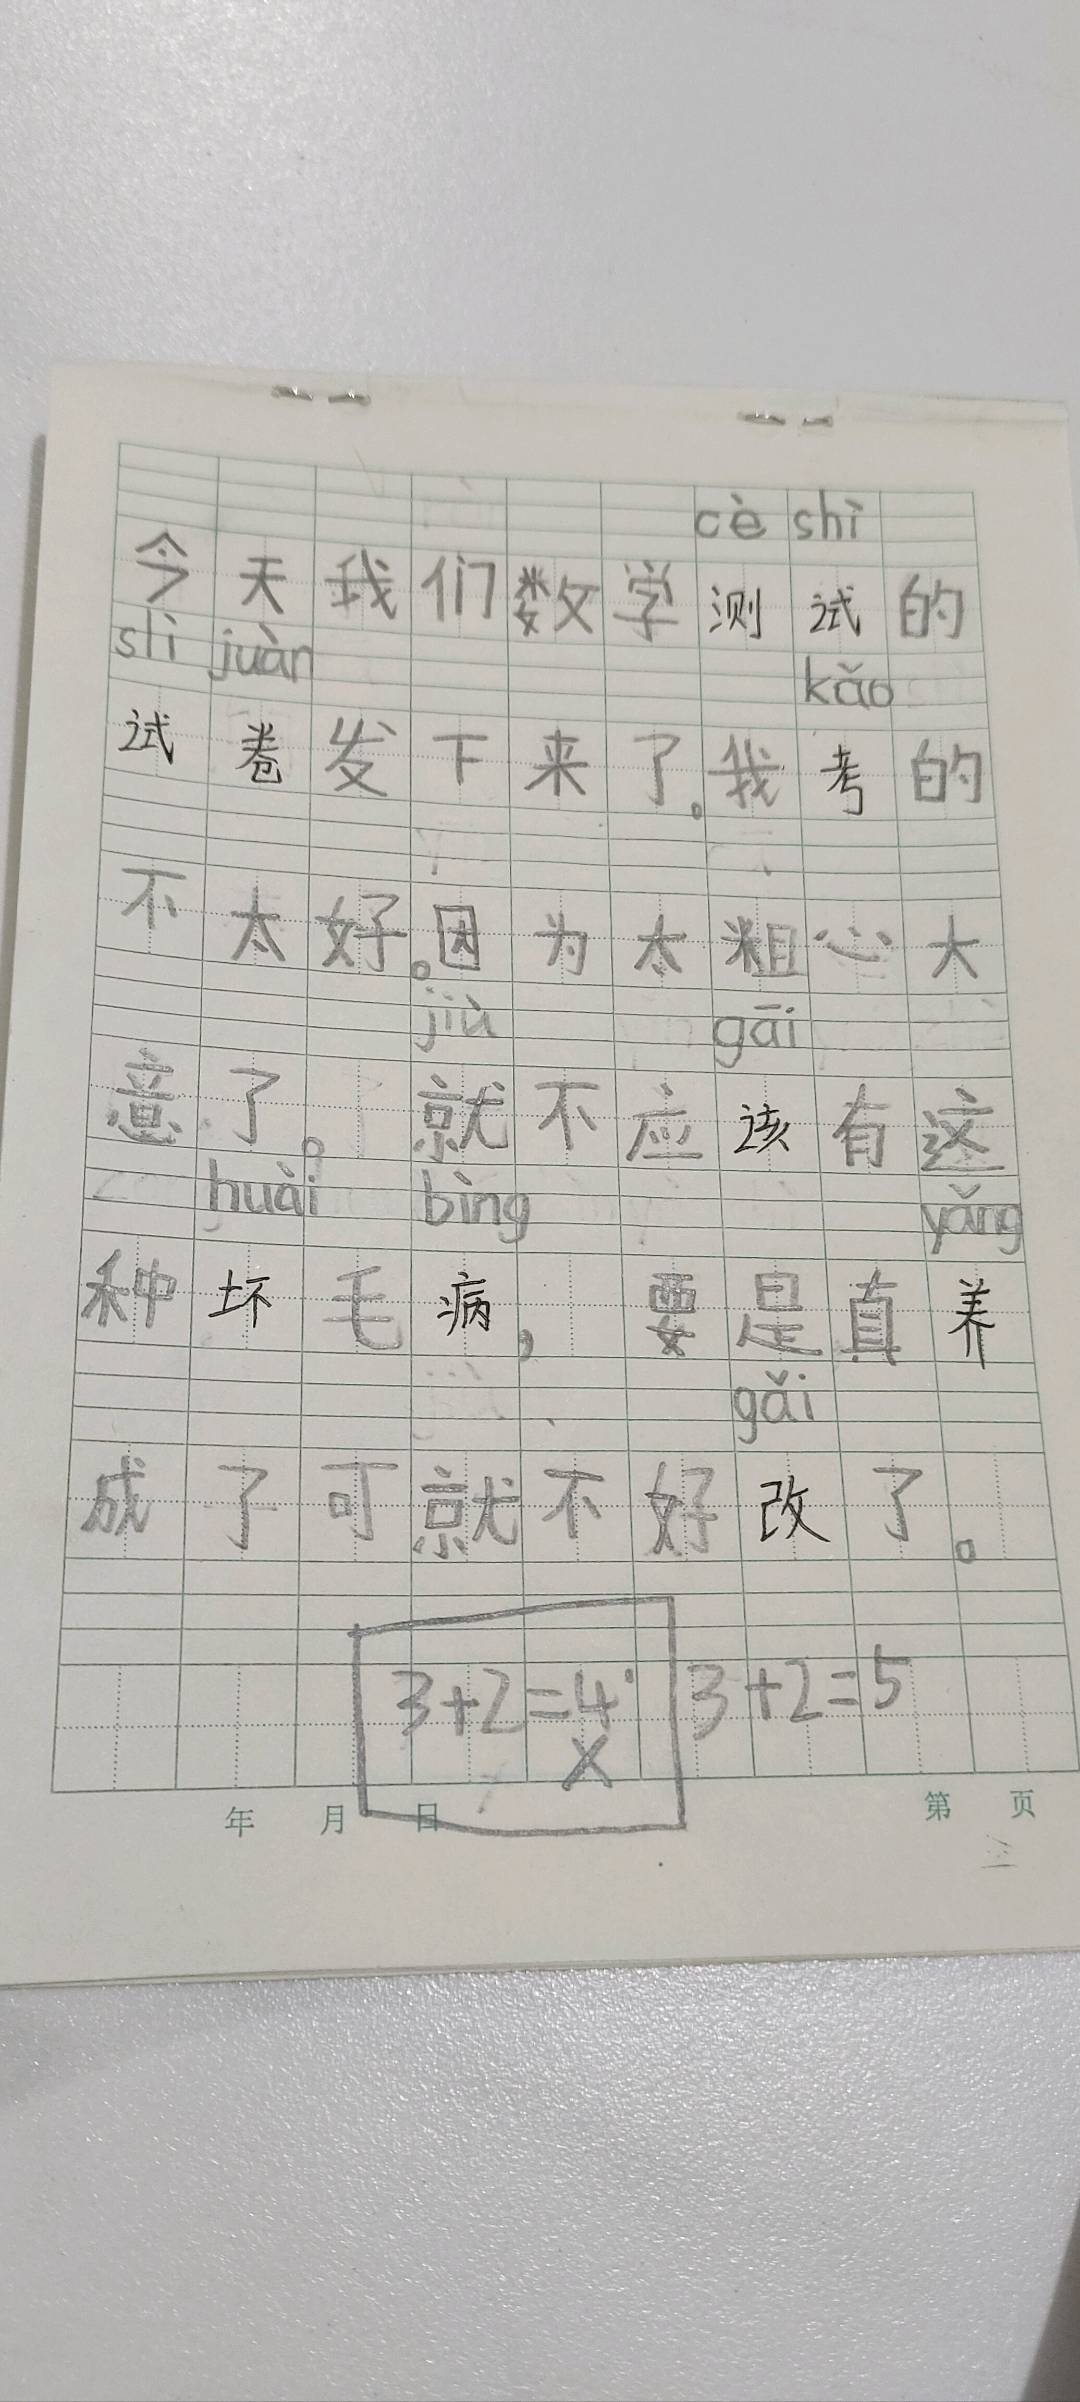 cè shì
今天我们数学测试的
shì juàn kǎo
试卷发下来了。我考的
不太好。因为太粗心大
jiù gāi
意了。就不应该有这
huài bìng yǎng
种坏毛病，要是真养
gǎi
成了可就不好改了。
3+2=4 3+2=5
×
年 月 日 第 页